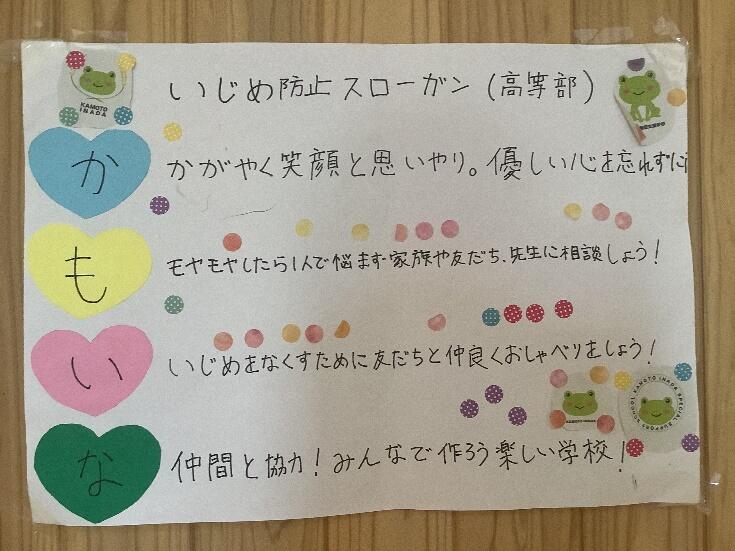 いじめ防止スローガン（高等部）
KAMOTO
INADA
か
かがやく笑顔と思いやり。優しい心を忘れずに
も
モヤモヤしたら1人で悩まず家族や友だち、先生に相談しよう！
い
いじめをなくすために友だちと仲良くおしゃべりをしよう！
KAMOTO INADA
KAMOTO INADA SPECIAL SUPPORT SCHOOL
な
仲間と協力！みんなで作ろう楽しい学校！